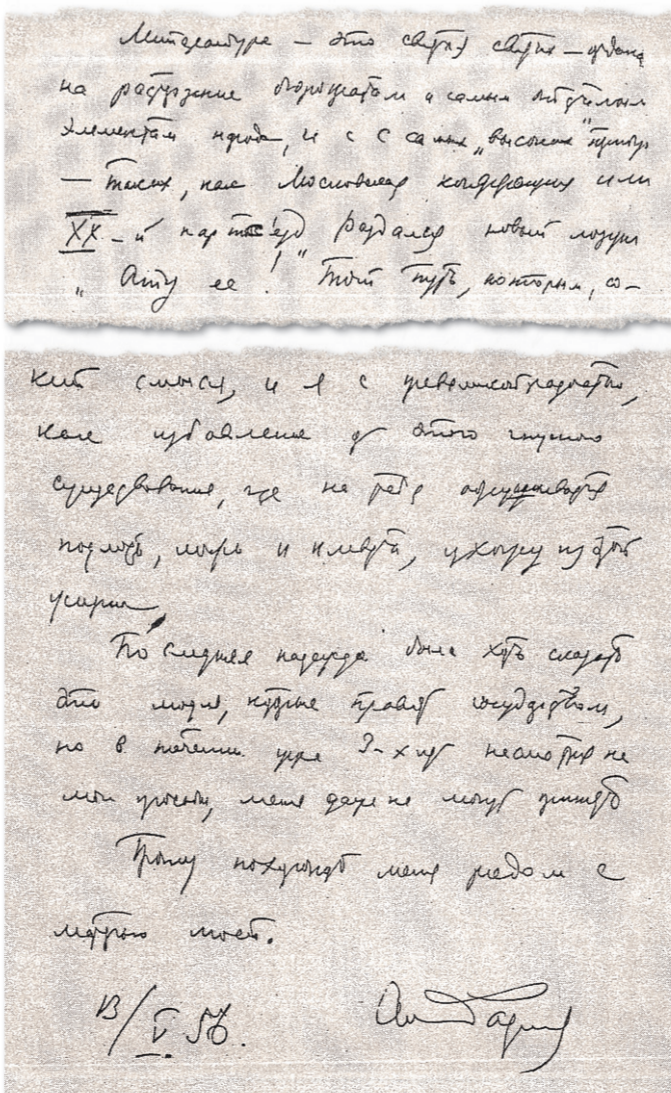 Литература — это святая святых — отдана
на растерзание бюрократам и самым отсталым
элементам народа, и с с самых „высоких" трибун
— таких, как Московская конференция или
XX-й партсъезд раздался новый лозунг
„Ату ее!" Тот путь, которым, со-
кий смысл, и я с превеликой радостью,
как избавление от этого гнусного
существования, где на тебя обрушивается
подлость, ложь и клевета, ухожу из этой
жизни.
Последняя надежда была хоть сказать
это людям, которые правят государством,
но в течении уже 3-х лет несмотря на
мои просьбы, меня даже не могут принять
Прошу похоронить меня рядом с
матерью моей.
13/V.56. Ал Фадеев